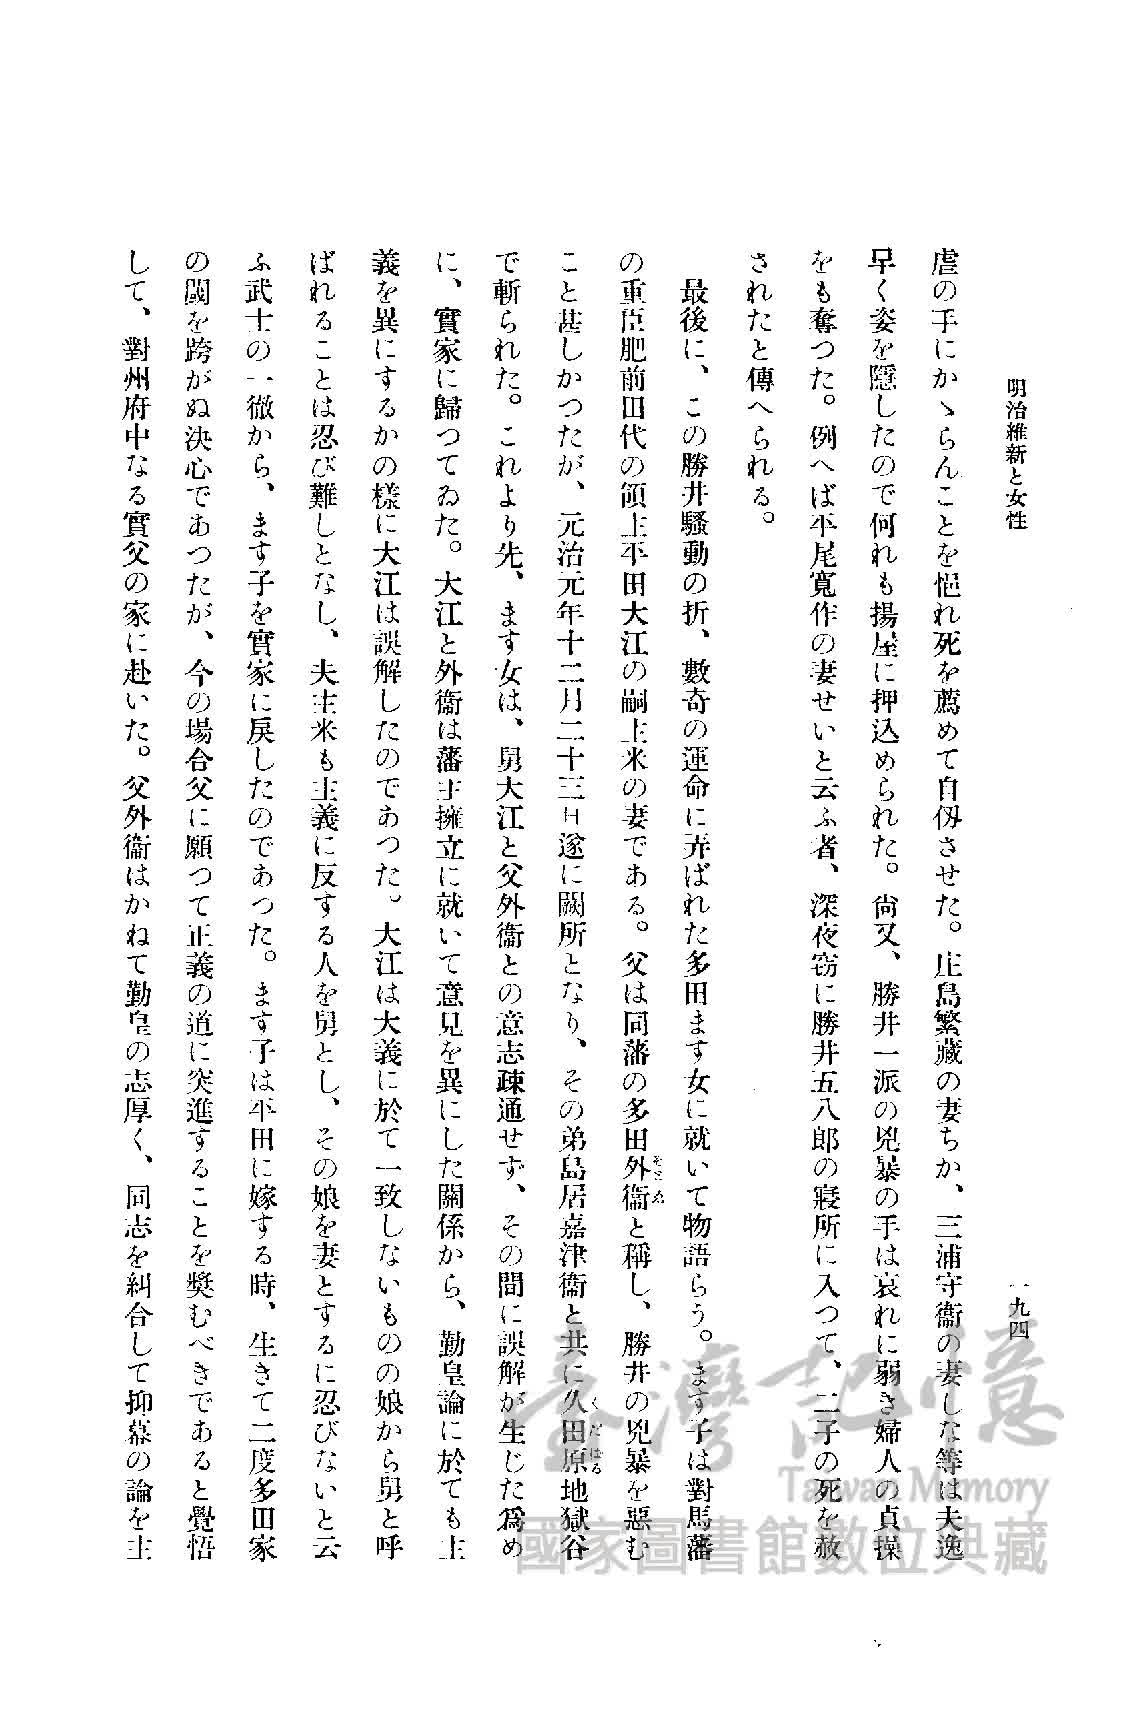 明治維新と女性
一九四
虐の手にかゝらんことを悒れ死を薦めて自刄させた。庄島繁藏の妻ちか、三浦守衞の妻しな等は夫逸
早く姿を隱したので何れも揚屋に押込められた。尙又、勝井一派の兇暴の手は哀れに弱き婦人の貞操
をも奪つた。例へば平尾寬作の妻せいと云ふ者、深夜窃に勝井五八郎の寢所に入つて、二子の死を赦
されたと傳へられる。
最後に、この勝井騷動の折、數奇の運命に弄ばれた多田ます女に就いて物語らう。ます子は對馬藩
の重臣肥前田代の領主平田大江の嗣主米の妻である。父は同藩の多田外衞と稱し、勝井の兇暴を惡む
そとゑ
こと甚しかつたが、元治元年十二月二十三日遂に闕所となり、その弟島居嘉津衞と共に久田原地獄谷
くだばる
で斬られた。これより先、ます女は、舅大江と父外衞との意志疎通せず、その間に誤解が生じた爲め
に、實家に歸つてゐた。大江と外衞は藩主擁立に就いて意見を異にした關係から、勤皇論に於ても主
義を異にするかの樣に大江は誤解したのであつた。大江は大義に於て一致しないものの娘から舅と呼
ばれることは忍び難しとなし、夫主米も主義に反する人を舅とし、その娘を妻とするに忍びないと云
ふ武士の一徹から、ます子を實家に戾したのであつた。ます子は平田に嫁する時、生きて二度多田家
の閾を跨がぬ決心であつたが、今の場合父に願つて正義の道に突進することを奬むべきであると覺悟
して、對州府中なる實父の家に赴いた。父外衞はかねて勤皇の志厚く、同志を糾合して抑幕の論を主
臺灣記憶
Taiwan Memory
國家圖書館數位典藏